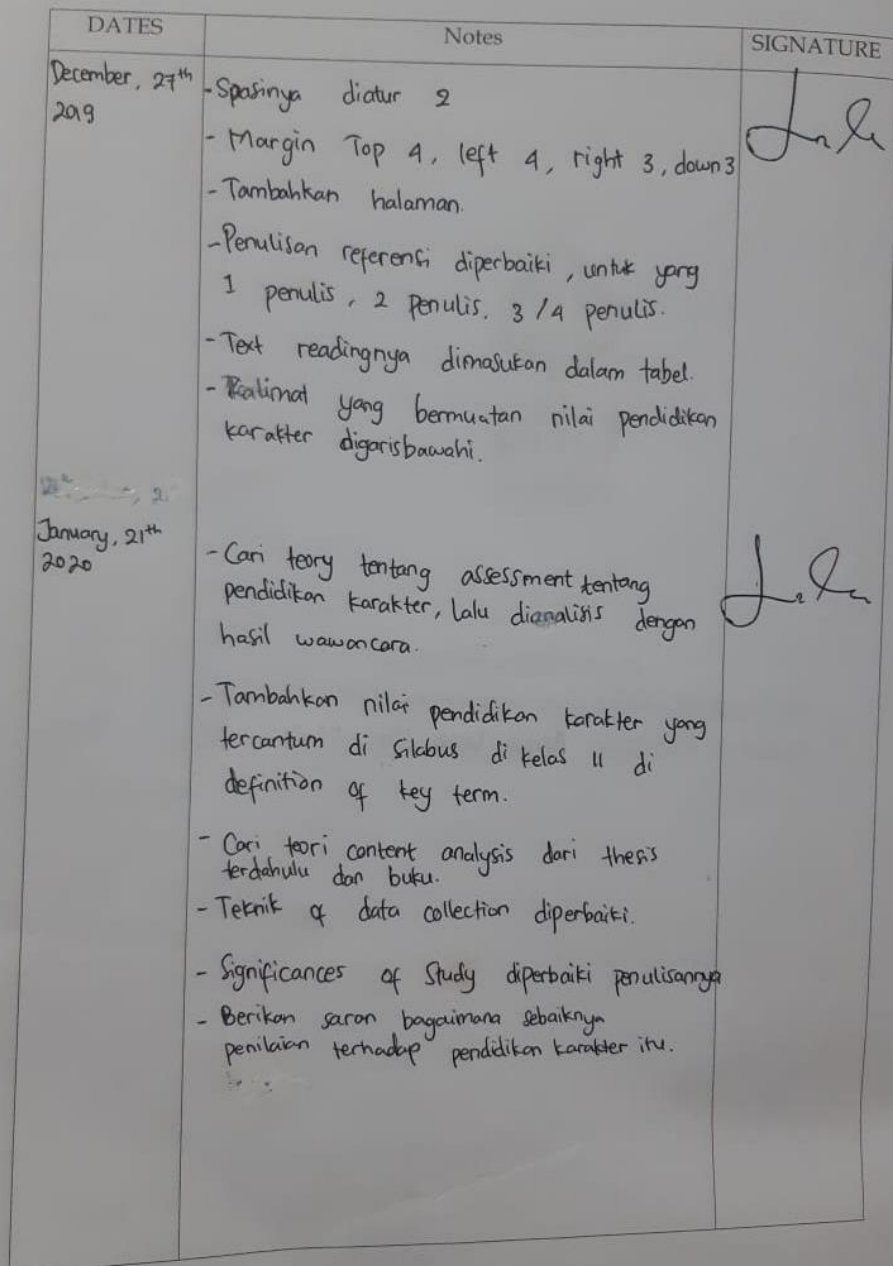 DATES Notes SIGNATURE
December, 27th
2019
- Spasinya diatur 2
- Margin Top 4, left 4, right 3, down 3
- Tambahkan halaman.
- Penulisan referensi diperbaiki, untuk yang
1 penulis, 2 penulis, 3/4 penulis.
- Text readingnya dimasukan dalam tabel.
- Kalimat yang bermuatan nilai pendidikan
karakter digarisbawahi.
January, 21th
2020
- Cari teory tentang assessment tentang
pendidikan karakter, lalu dianalisis dengan
hasil wawancara.
- Tambahkan nilai pendidikan karakter yang
tercantum di silabus di kelas 11 di
definition of key term.
- Cari teori content analysis dari thesis
terdahulu dan buku.
- Teknik of data collection diperbaiki.
- Significances of Study diperbaiki penulisannya
- Berikan saran bagaimana sebaiknya
penilaian terhadap pendidikan karakter itu.